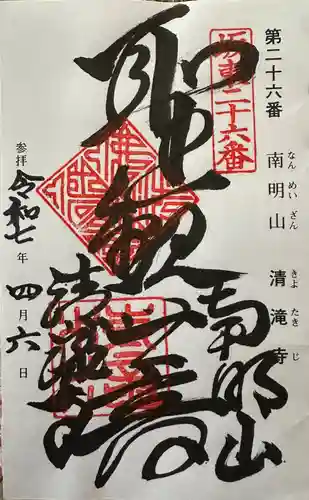 第二十六番 南明山 清滝寺
なんめいざん きよたきじ
坂東二十六番
聖観世音
南明山
清瀧寺
参拝 令和七年 四月六日